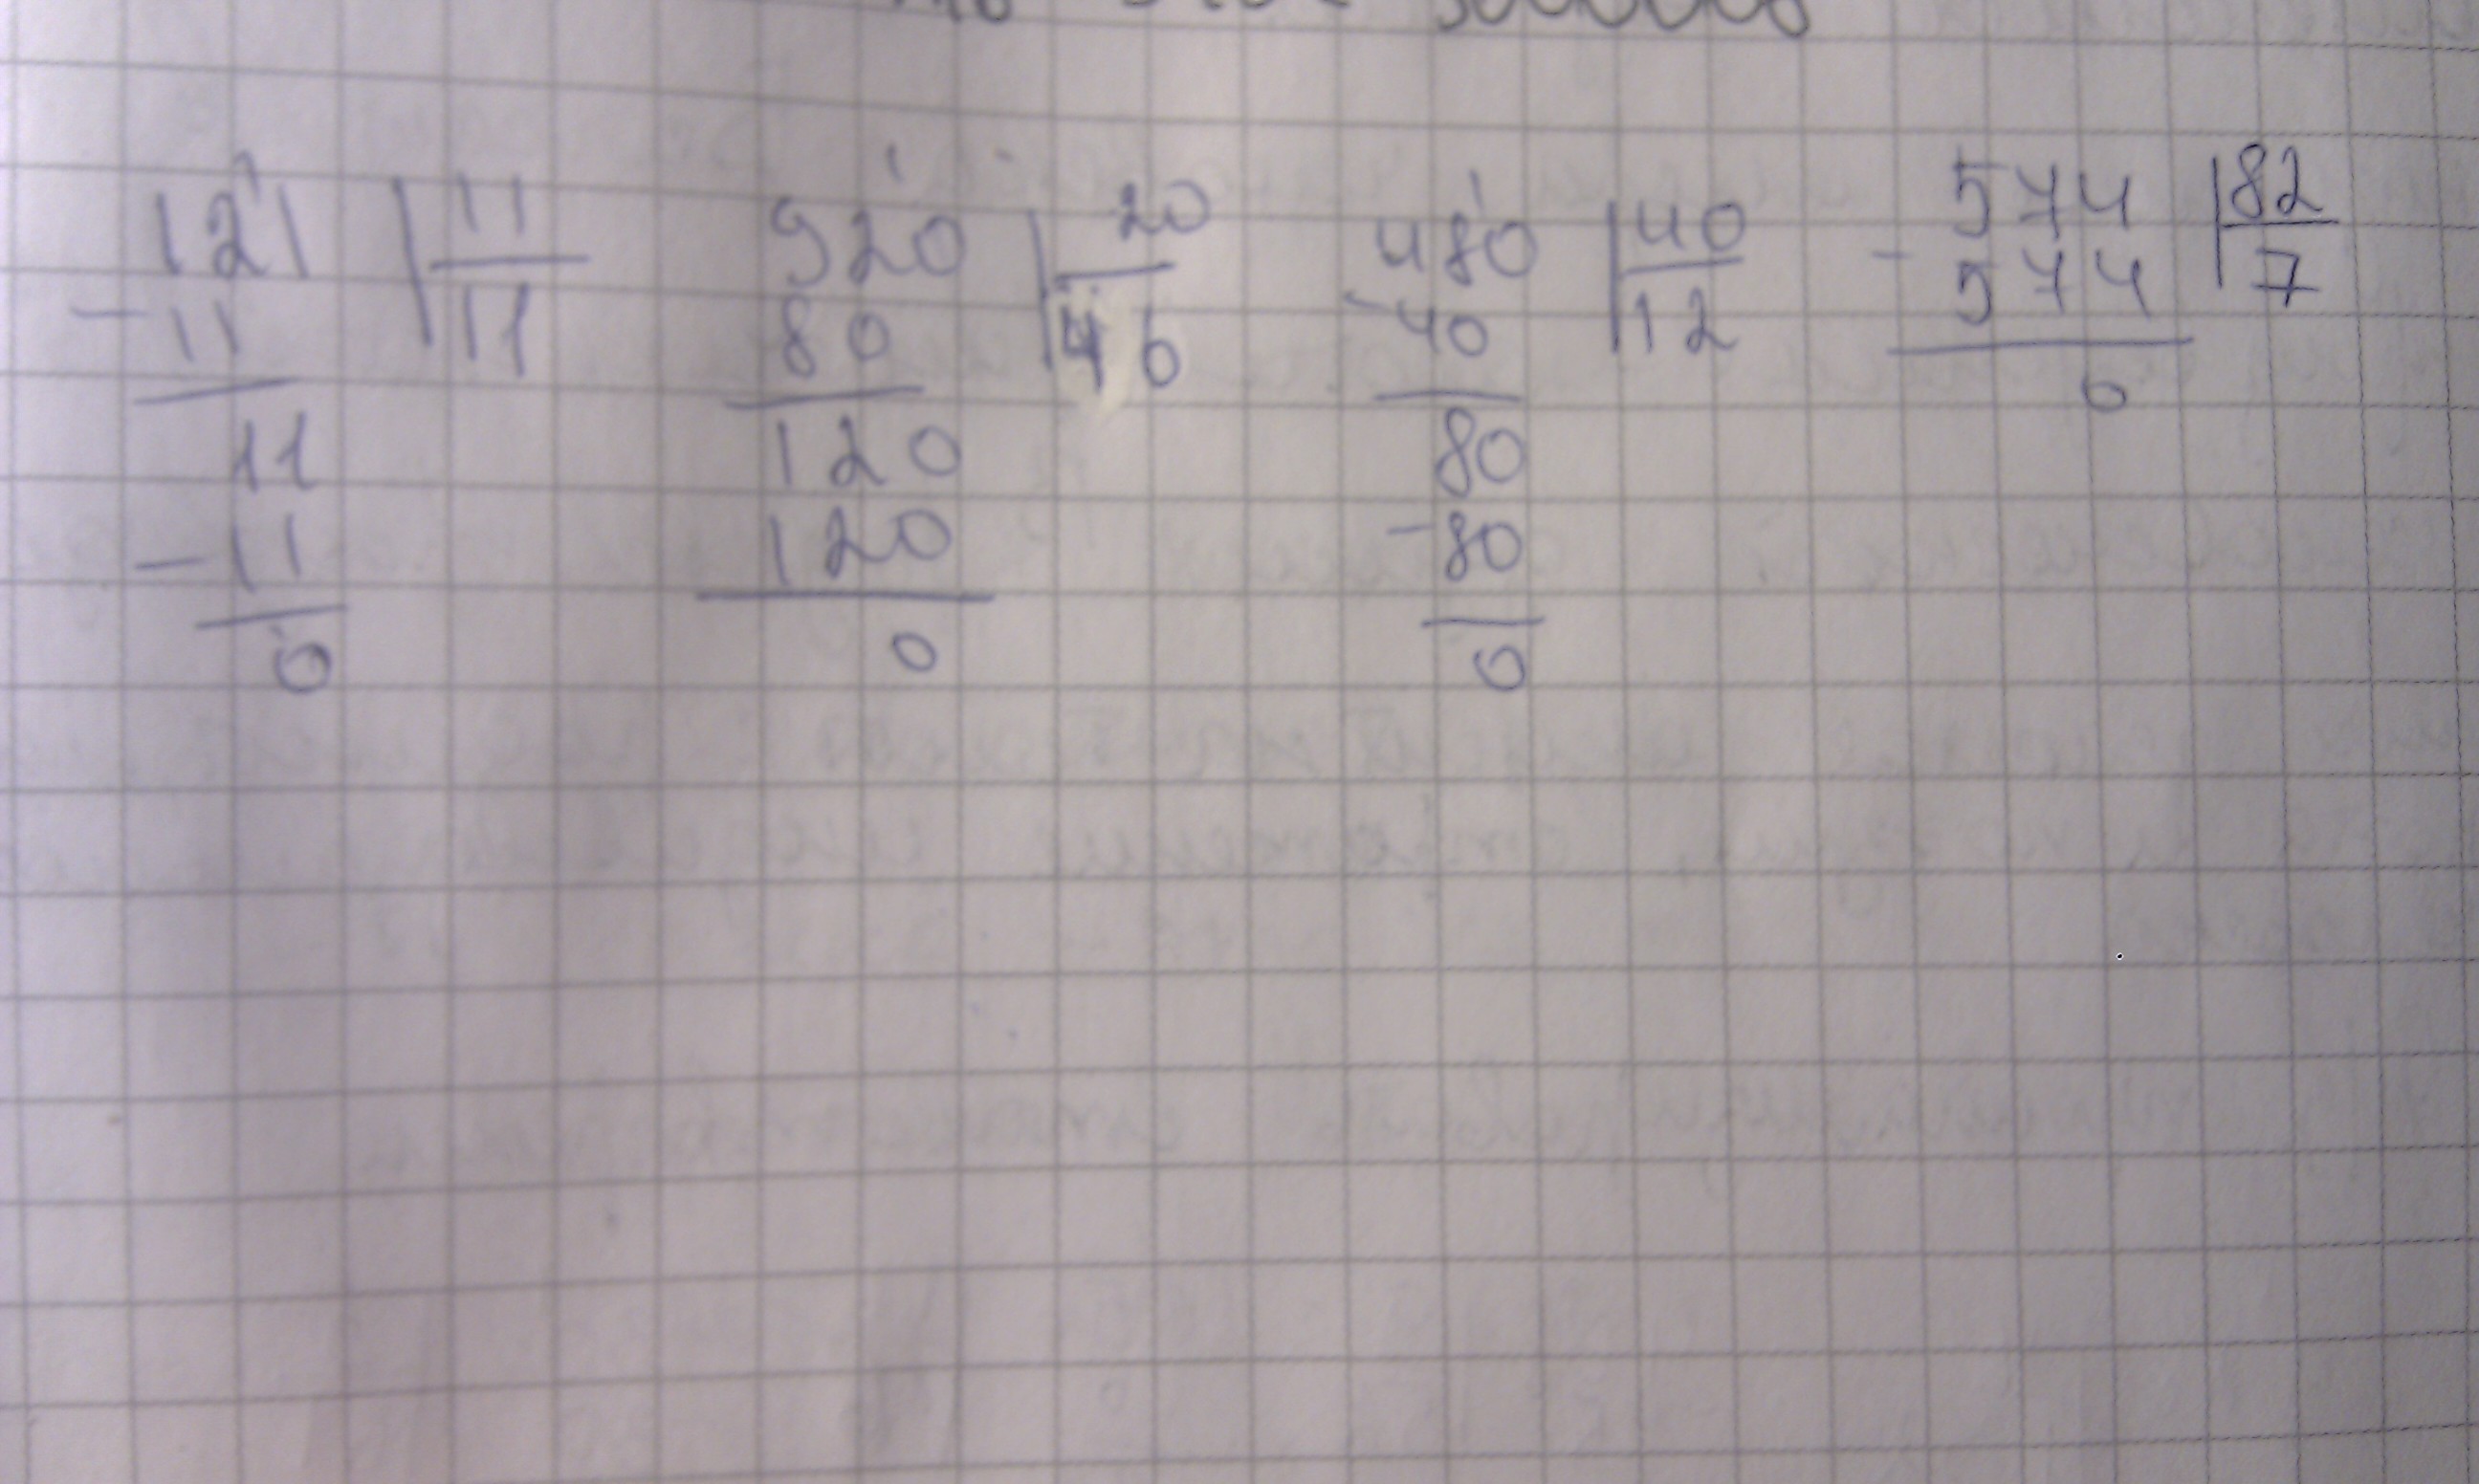 121 | 11
- 11 | 11
11
- 11
0
920 | 20
80 | 46
120
120
0
480 | 40
- 40 | 12
80
- 80
0
574 | 82
- 574 | 7
0